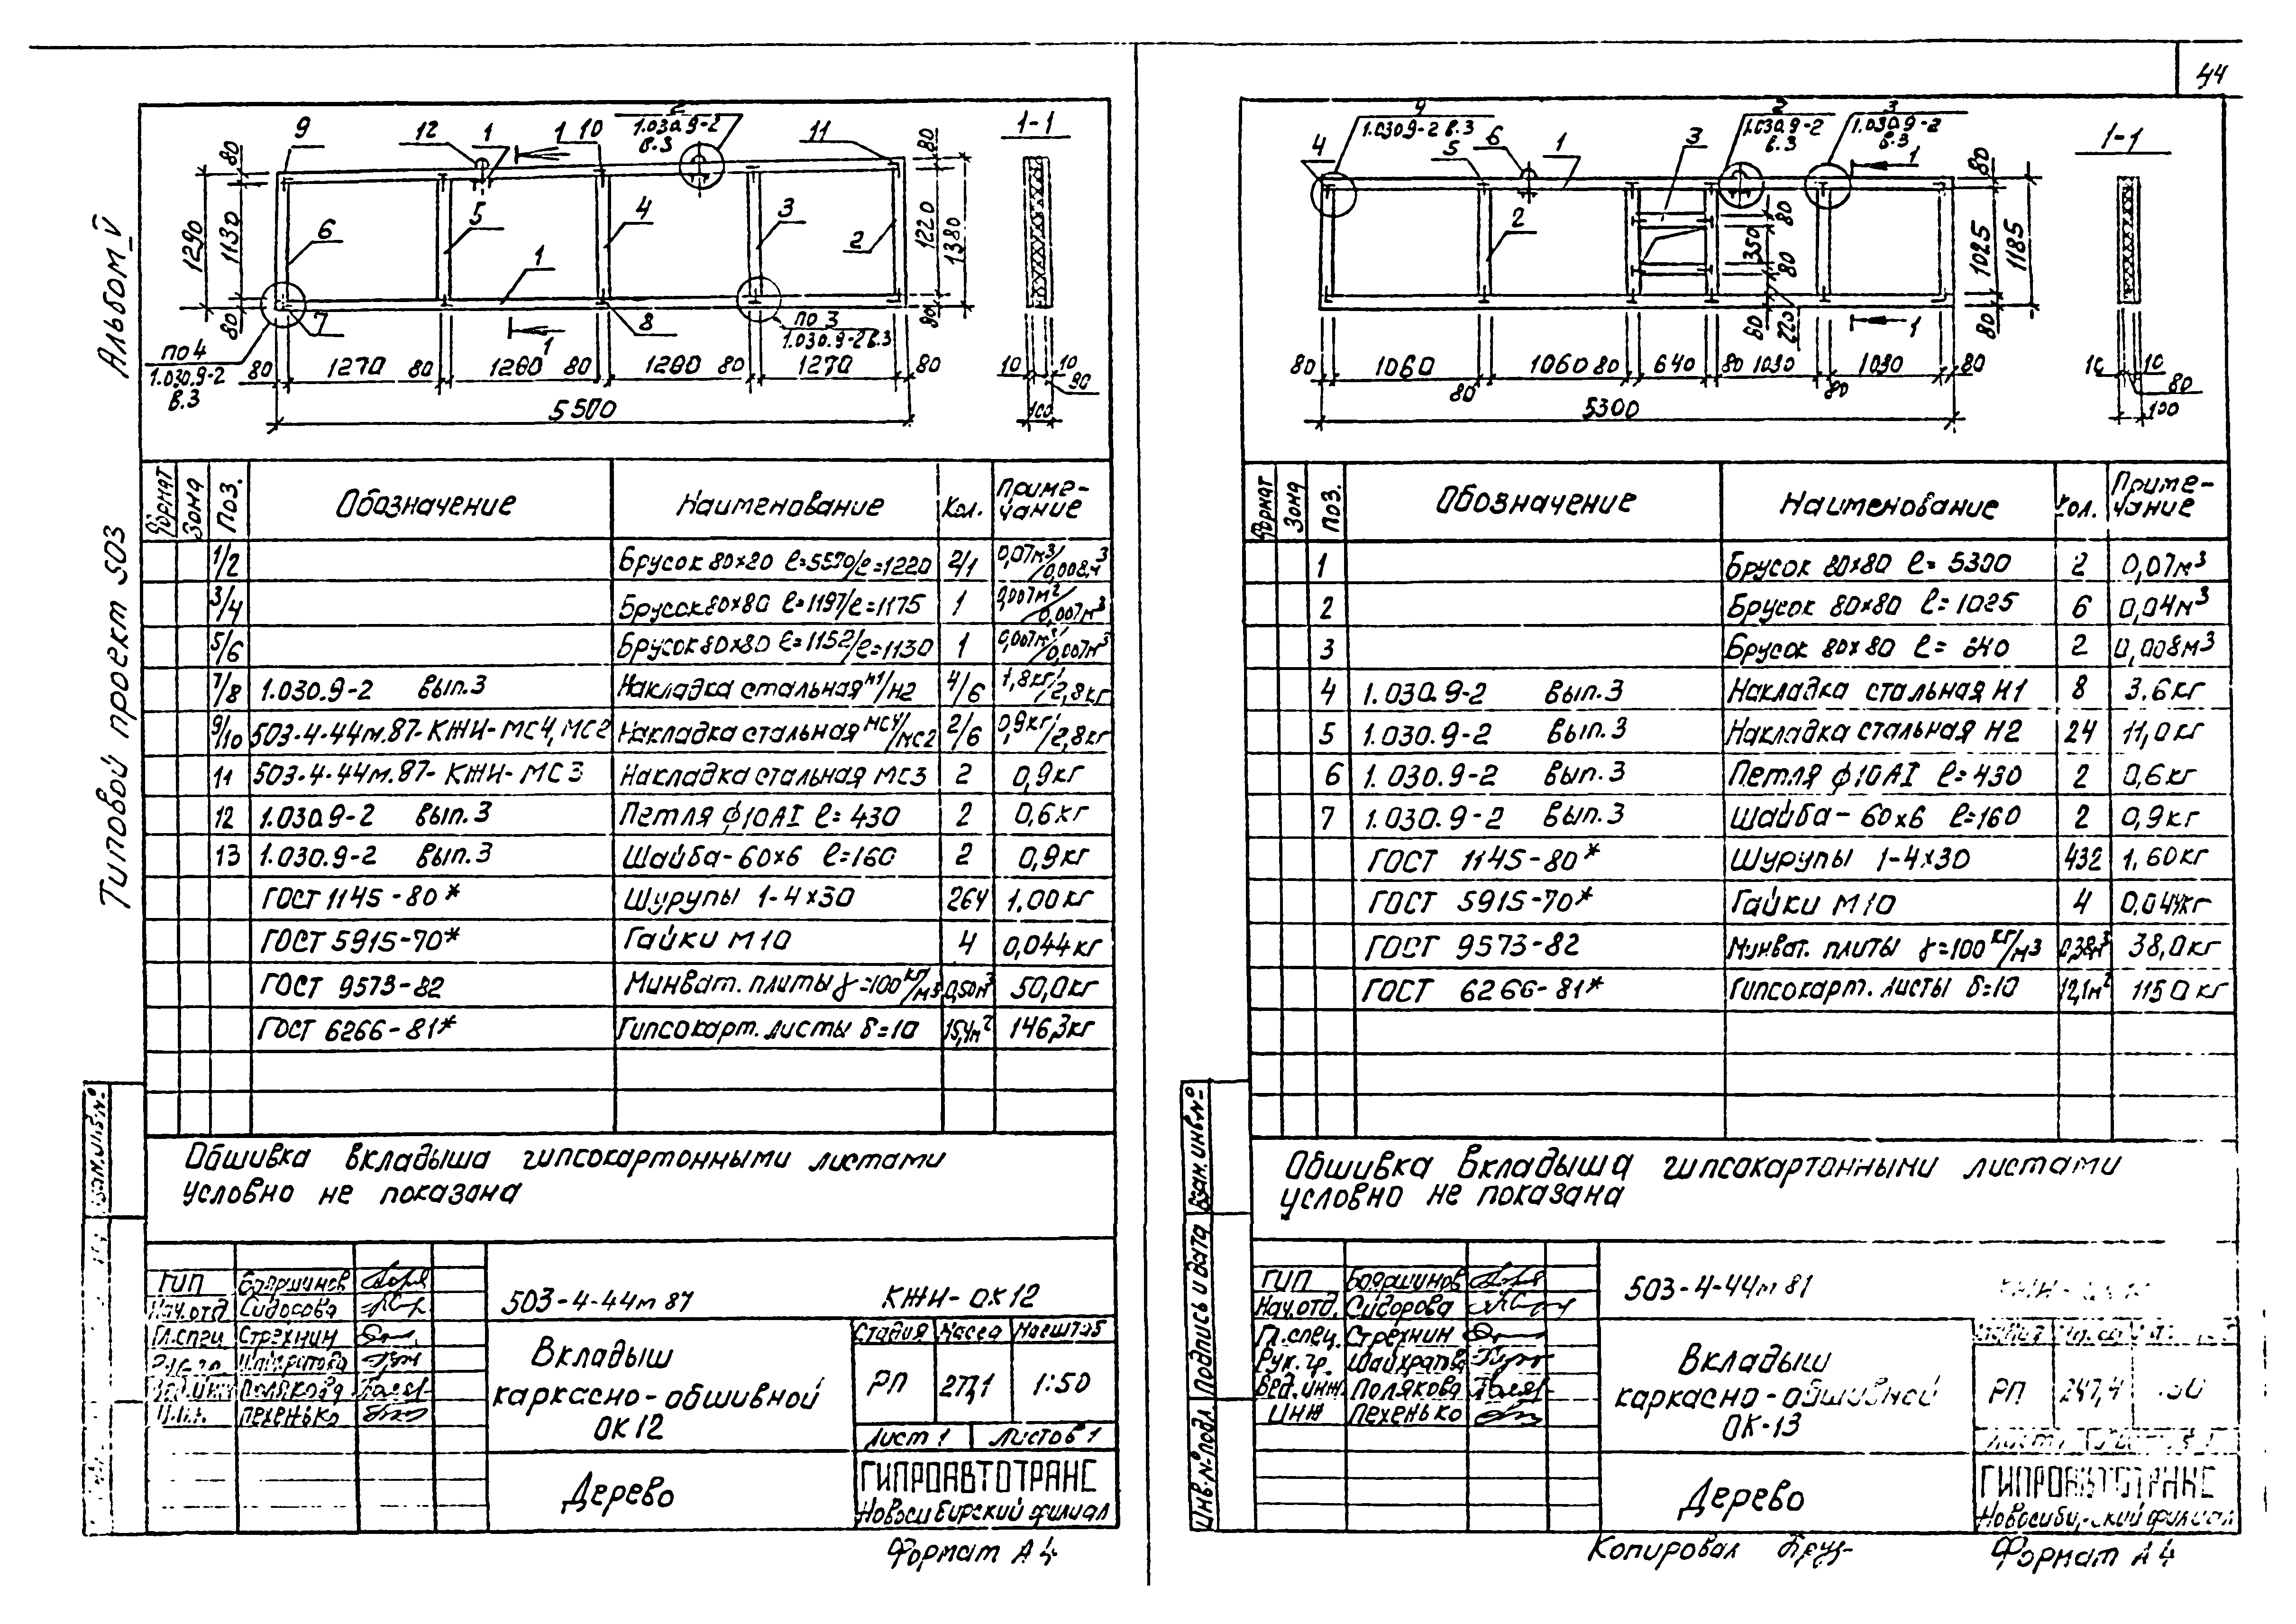 44
Альбом V
Типовой проект 503
9
12
1
1
10
2
1.030.9-2
в.3
11
1-1
80
1290
1130
80
6
5
4
3
2
1
80
1220
1380
80
по 4
1.030.9-2
в.3
7
8
1
по 3
1.030.9-2 в.3
80 1270 80 1260 80 1260 80 1270 80
5500
10 10
80
100
Формат Зона Поз. Обозначение Наименование Кол. Примечание
1/2 Брусок 80х80 ℓ=5570/ℓ=1220 2/1 0,07м³/0,008м³
3/4 Брусок 80х80 ℓ=1197/ℓ=1175 1 0,007м²/0,007м³
5/6 Брусок 80х80 ℓ=1152/ℓ=1130 1 0,007м³/0,007м³
7/8 1.030.9-2 вып.3 Накладка стальная Н1/Н2 4/6 1,8кг/2,8кг
9/10 503-4-44м.87-КЖИ-МС4, МС2 Накладка стальная МС4/МС2 2/6 0,9кг/2,8кг
11 503-4-44м.87-КЖИ-МС3 Накладка стальная МС3 2 0,9кг
12 1.030.9-2 вып.3 Петля ф10АI ℓ=430 2 0,6кг
13 1.030.9-2 вып.3 Шайба-60х6 ℓ=160 2 0,9кг
ГОСТ 1145-80* Шурупы 1-4х30 264 1,00кг
ГОСТ 5915-70* Гайки М10 4 0,044кг
ГОСТ 9573-82 Минват. плиты γ=100 кг/м3 0,50м³ 50,0кг
ГОСТ 6266-81* Гипсокарт. листы δ=10 15,4м² 146,3кг
Обшивка вкладыша гипсокартонными листами
условно не показана
Взам.инв.№
ГИП Бояршинов
Нач.отд Сидорова
Гл.спец Стрехнин
Рук.гр.
Вед.инж Полякова
Инж. Пехенько
503-4-44м 87 КЖИ-ОК12
Вкладыш
каркасно-обшивной
ОК12
Стадия Масса Масштаб
РП 277,1 1:50
Лист 1 Листов 1
Дерево
ГИПРОАВТОТРАНС
Новосибирский филиал
Формат А4
4
1.030.9-2 в.3
4
5
6
1
2
1.030.9-2
в.3
3
3
1.030.9-2
в.3
1
1-1
2
80
350
80
220
60
80
1025
1185
80
1
80 1060 80 1060 80 640 80 1030 80 1030 80
5300
10 10
80
100
Формат Зона Поз. Обозначение Наименование Кол. Примечание
1 Брусок 80х80 ℓ=5300 2 0,07м³
2 Брусок 80х80 ℓ=1025 6 0,04м³
3 Брусок 80х80 ℓ=640 2 0,008м³
4 1.030.9-2 вып.3 Накладка стальная Н1 8 3.6кг
5 1.030.9-2 вып.3 Накладка стальная Н2 24 11,0кг
6 1.030.9-2 вып.3 Петля ф10АI ℓ=430 2 0,6кг
7 1.030.9-2 вып.3 Шайба-60х6 ℓ=160 2 0,9кг
ГОСТ 1145-80* Шурупы 1-4х30 432 1,60кг
ГОСТ 5915-70* Гайки М10 4 0,044кг
ГОСТ 9573-82 Минват. плиты γ=100 кг/м3 0,38м³ 38,0кг
ГОСТ 6266-81* Гипсокарт. листы δ=10 12,1м² 115,0кг
Обшивка вкладыша гипсокартонными листами
условно не показана
Взам.инв.№
Подпись и дата
Инв.№подл
ГИП Бояршинов
Нач.отд. Сидорова
Гл.спец. Стрехнин
Рук.гр. Шайхратова
Вед.инж Полякова
Инж Пехенько
503-4-44м 81
Вкладыш
каркасно-обшивной
ОК-13
РП 247,4
Дерево
ГИПРОАВТОТРАНС
Новосибирский филиал
Копировал
Формат А4